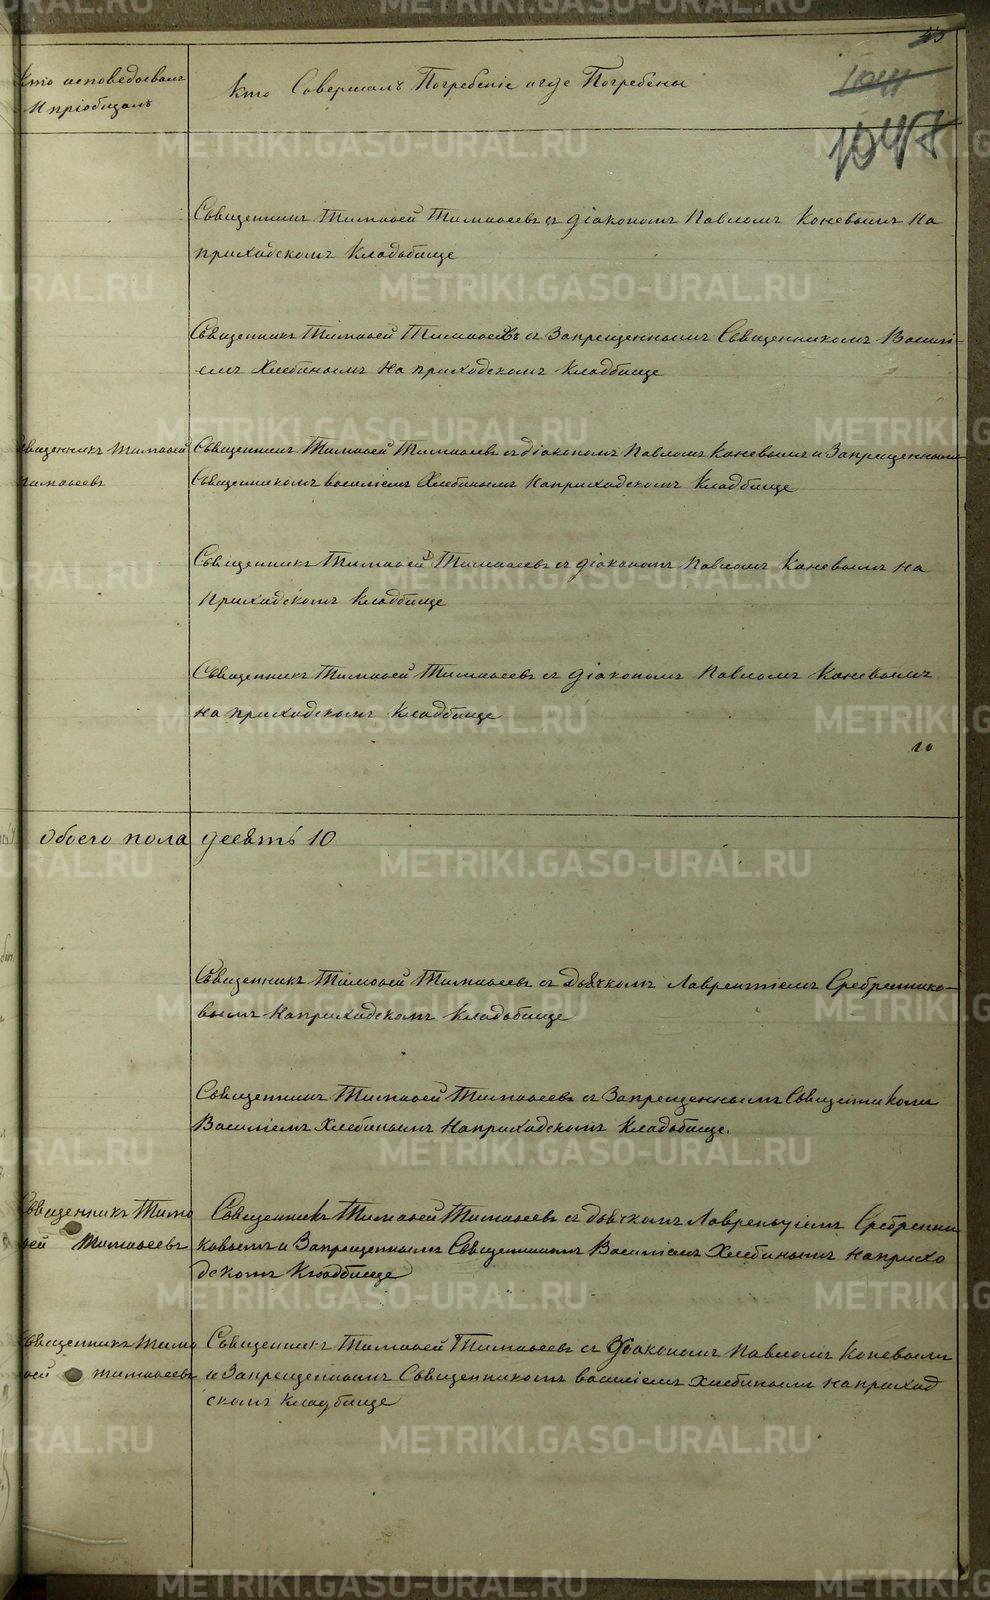 45
1044
1047
Кто исповедовалъ
И пріобщалъ
Кто Совершалъ Погребеніе и где Погребены
Священникъ Тимофей Тимофеевъ съ діакономъ Павломъ Коневымъ На
приходскомъ Кладбище
Священникъ Тимофей Тимофеевъ съ Запрещеннымъ Священникомъ Васи
емъ Хлебинымъ На приходскомъ Кладбище
Священникъ Тимофей
Тимофеевъ
Священникъ Тимофей Тимофеевъ съ діакономъ Павломъ Коневымъ и Запрещеннымъ
Священникомъ василіемъ Хлебинымъ На приходскомъ Кладбище
Священникъ Тимофей Тимофеевъ съ діакономъ Павломъ Коневымъ На
Приходскомъ Кладбище
Священникъ Тимофей Тимофеевъ съ діакономъ Павломъ Коневымъ
на приходскомъ Кладбище
10
Обоего пола девять 10
Священникъ Тимофей Тимофеевъ съ Дьячкомъ Лаврентіемъ Сребреннико-
вымъ На приходскомъ Кладбище
Священникъ Тимофей Тимофеевъ съ Запрещеннымъ Священникомъ
Василіемъ Хлебинымъ На приходскомъ Кладбище.
Священникъ Тимо
фей Тимофеевъ
Священникъ Тимофей Тимофеевъ съ Дьячкомъ Лаврентіемъ Сребренни
ковымъ и Запрещеннымъ Священникомъ Василіемъ Хлебинымъ На прихо
дскомъ Кладбище
Священникъ Тимо
фей тимофеевъ
Священникъ Тимофей Тимофеевъ съ Діакономъ Павломъ Коневымъ
и Запрещеннымъ Священникомъ василіемъ Хлебинымъ На приход
скомъ Кладбище
METRIKI.GASO-URAL.RU